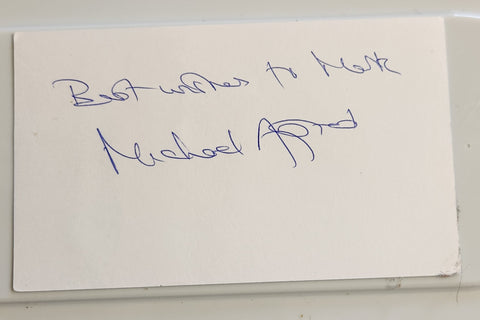 Best wishes to Mark
Michael Apted